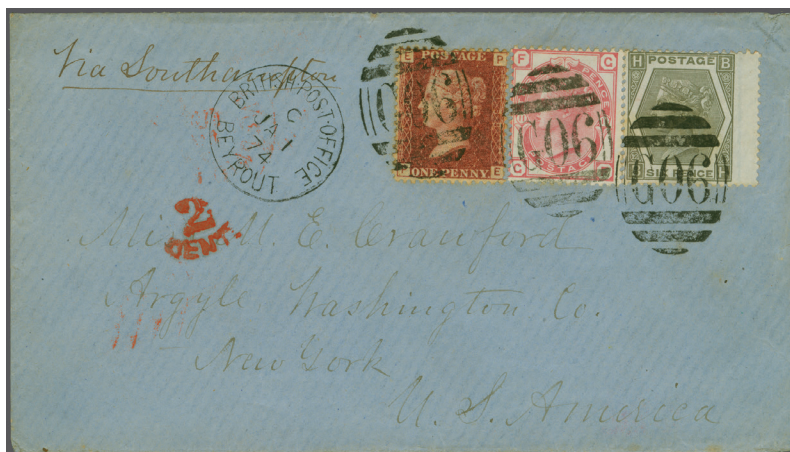 Via Southampton
BRITISH·POST·OFFICE
C
JA 1
74
BEYROUT
E POSTAGE P
P ONE PENNY E
G06
F PENCE G
POSTAGE
G06
H POSTAGE B
B SIX PENCE H
G06
2
CENTS
Miss M. E. Crawford
Argyle, Washington Co.
New York
U. S. America